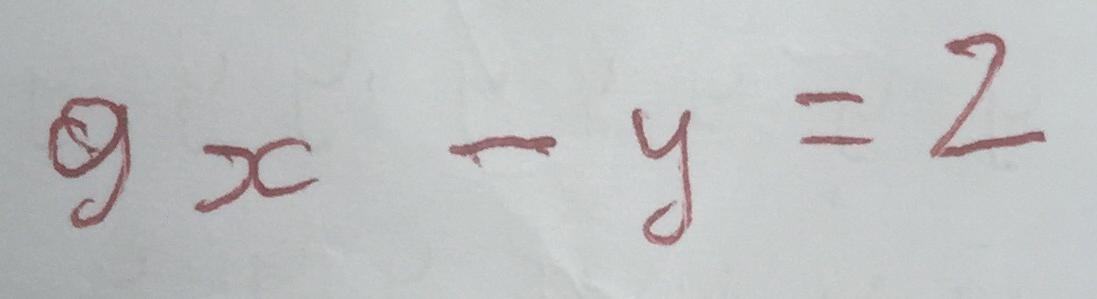 9x - y = 2